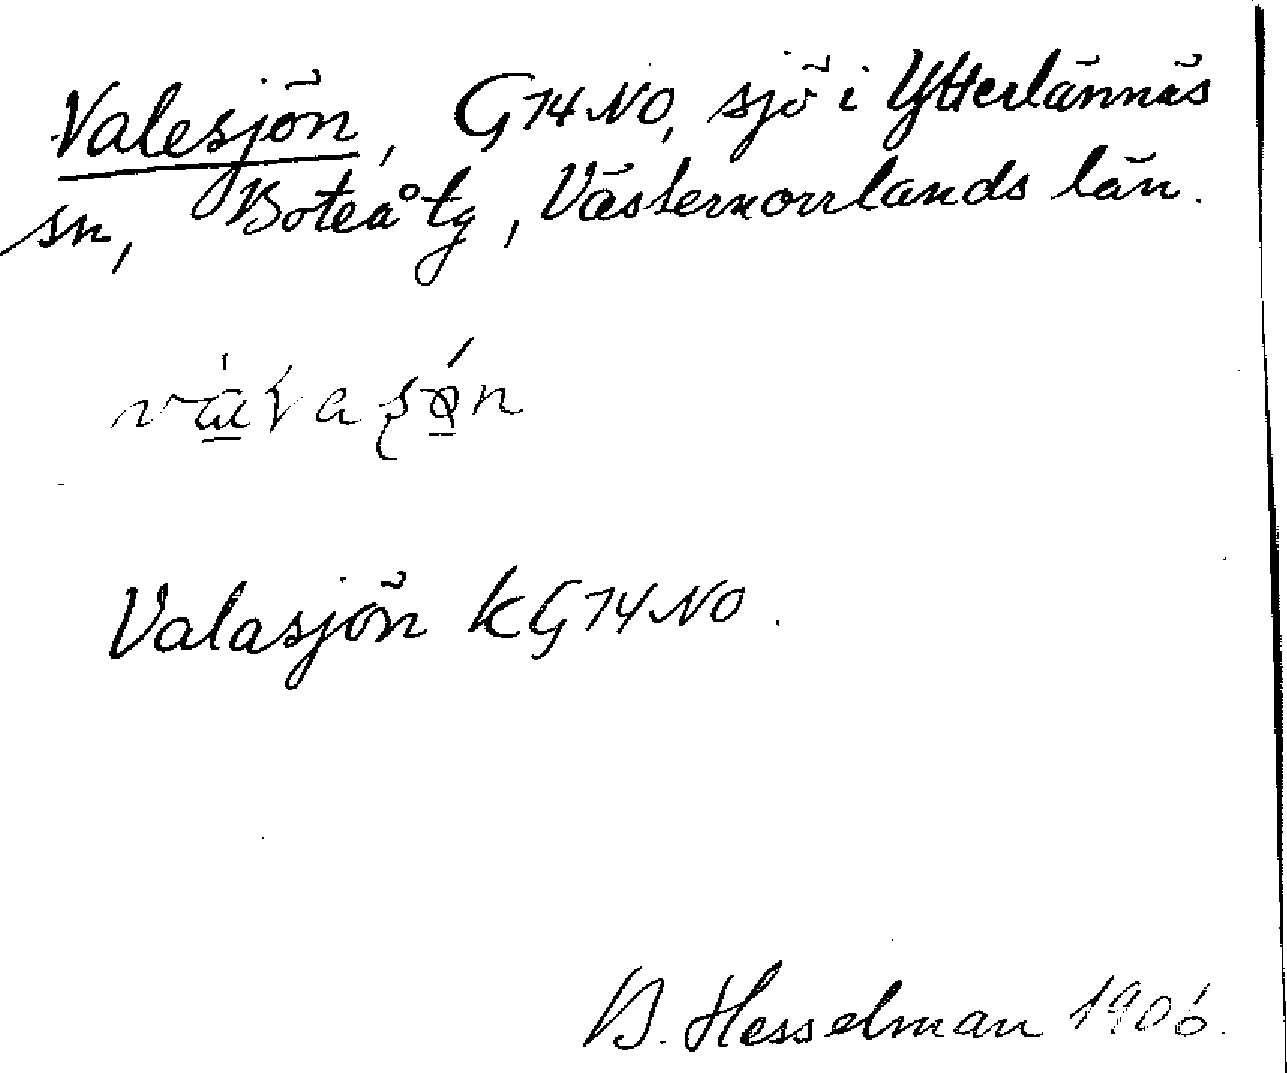 Valesjön, G74NO, sjö i Ytterlännäs
sn, Boteå tg, Västernorrlands län.
Valasjön kG74NO.
B. Hesselman 1906.